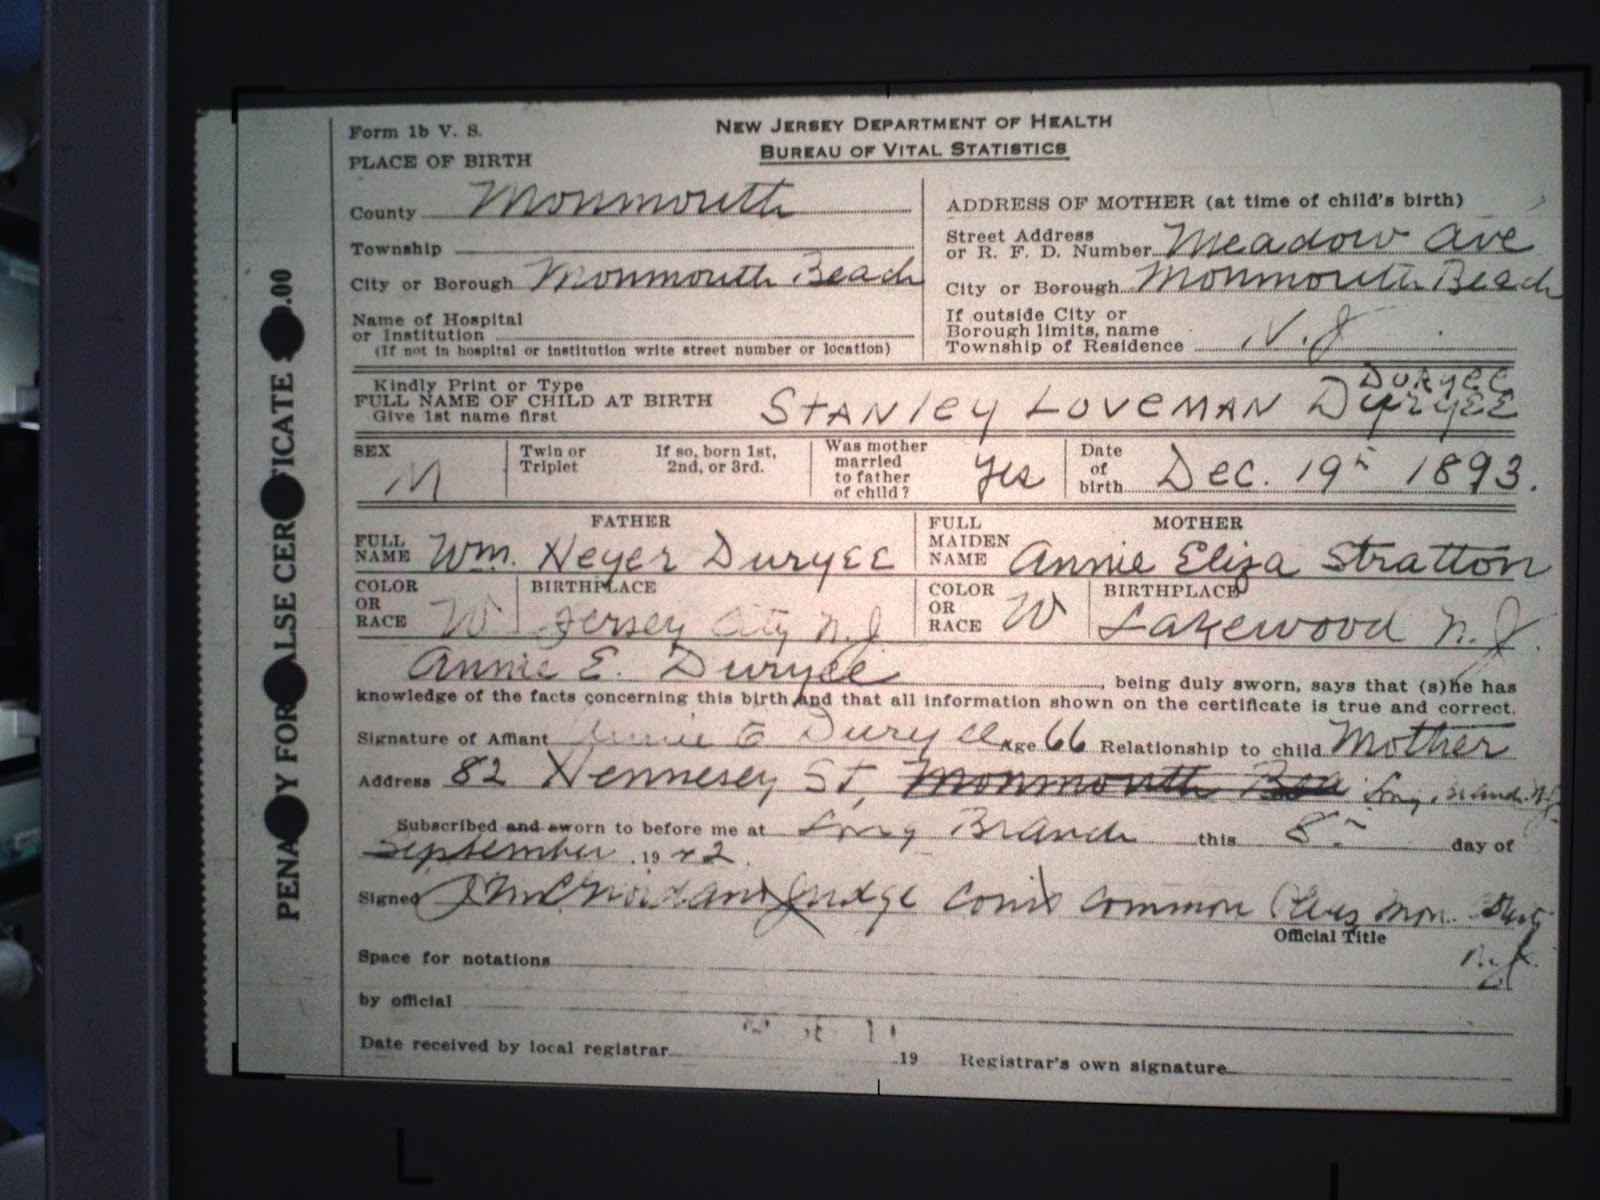 Form 1b V. S.
NEW JERSEY DEPARTMENT OF HEALTH
BUREAU OF VITAL STATISTICS
PLACE OF BIRTH
County Monmouth
Township
City or Borough Monmouth Beach
Name of Hospital
or Institution
(If not in hospital or institution write street number or location)
ADDRESS OF MOTHER (at time of child's birth)
Street Address
or R. F. D. Number Meadow Ave
City or Borough Monmouth Beach
If outside City or
Borough limits, name
Township of Residence N.J.
Kindly Print or Type
FULL NAME OF CHILD AT BIRTH
Give 1st name first
DURYEE
STANLEY LOVEMAN DURYEE
SEX M
Twin or
Triplet
If so, born 1st,
2nd, or 3rd.
Was mother
married
to father
of child? yes
Date
of
birth Dec. 19th 1893.
FATHER
FULL
NAME Wm. Heyer Duryee
MOTHER
FULL
MAIDEN
NAME Annie Eliza Stratton
COLOR
OR
RACE W
BIRTHPLACE
Jersey City N.J.
COLOR
OR
RACE W
BIRTHPLACE
Lakewood N.J.
Annie E. Duryee, being duly sworn, says that (s)he has
knowledge of the facts concerning this birth and that all information shown on the certificate is true and correct.
Signature of Affiant Annie E Duryee Age 66 Relationship to child Mother
Address 82 Hennesey St, Monmouth Bea
Subscribed and sworn to before me at Long Branch this 8th day of
September, 1942.
Signed Judge Common Pleas Mon.
Official Title
N.J.
Space for notations
by official
Date received by local registrar 19 Registrar's own signature
PENA Y FOR ALSE CER TICATE .00